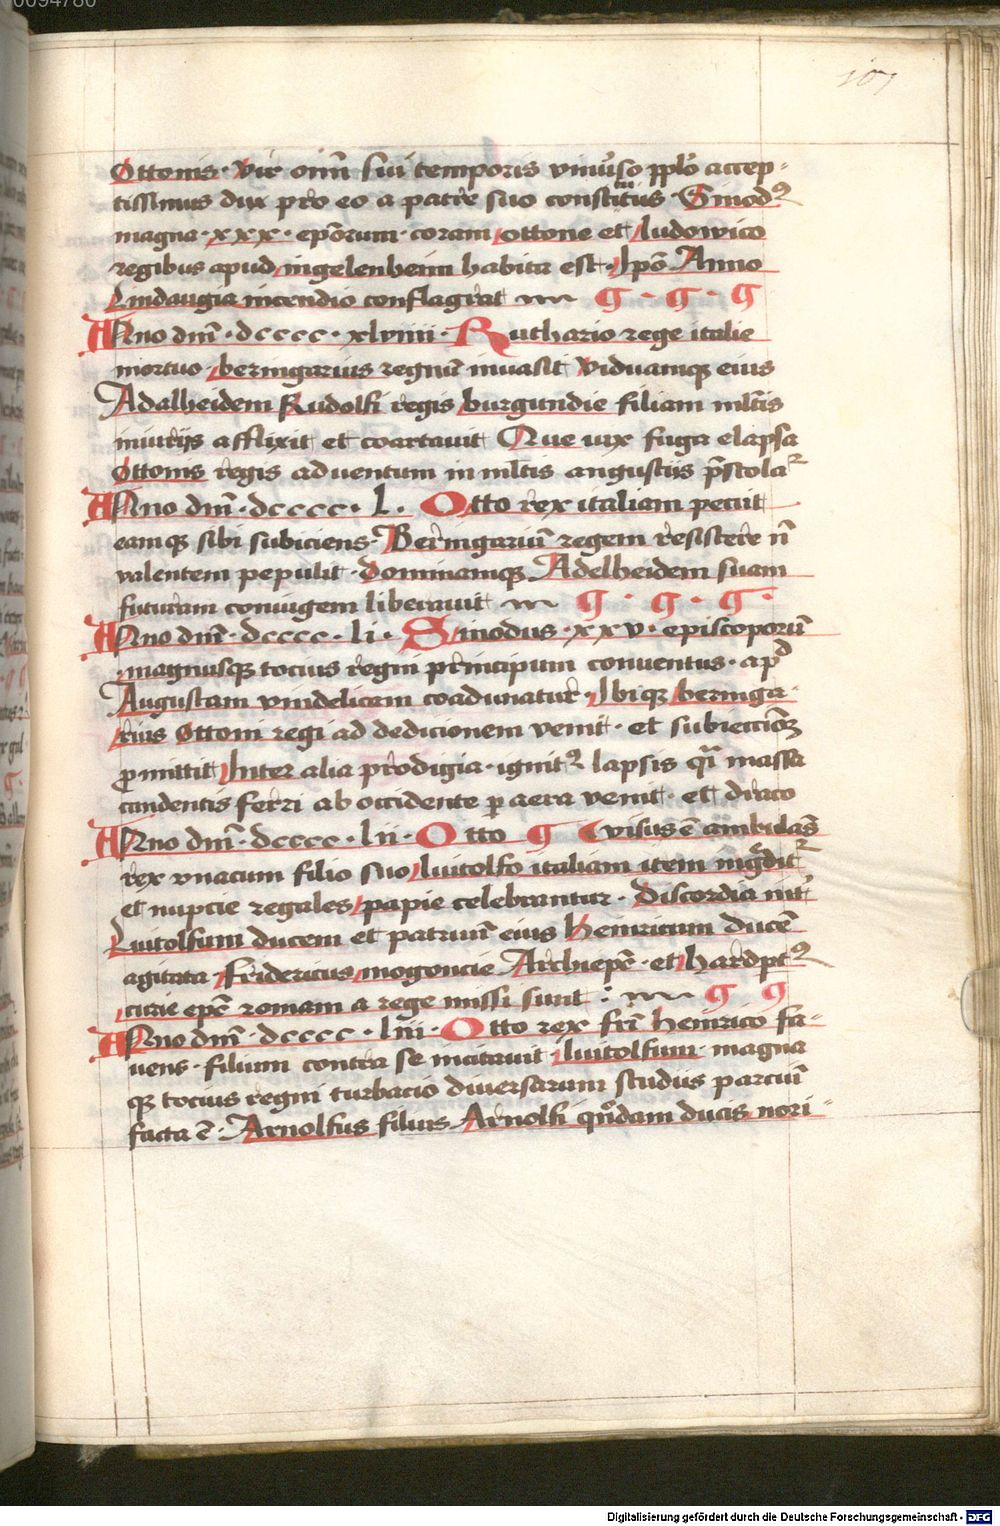 0094780
107
Ottonis · Vir oım̄ sui temporis vniu͛so pplo͛ accep-
tissimus dux pro eo a patre suo constitutus · Sinodꝰ
magna · xxx · epōrum · coram ottone et ludowico
regibus apud ingelenheim habita est · Ipō Anno
Lindaugia incendio conflagrat
Anno dnī · dcccc · xlviiii · Ruthario rege italie
mortuo · beringarius regnū inuasit viduamqꝫ eius
Adalheidem Rudolfi regis burgundie filiam ml̄tis
iniurijs afflixit et coartauit Que vix fuga elapsa
Ottonis regis aduentum in ml̄tis angustijs p̄stolaꝛ
Anno dnī · dcccc · l · Otto rex italiam peciit
eamqꝫ sibi subiciens · Beringariū regem resistere n̄
valentem pepulit · dominamqꝫ Adelheidem suam
futuram coniugem liberauit
Anno dnī · dcccc · li · Sinodus · xxv · episcoporū
magnusqꝫ tocius regni principum conuentus · apd
Augustam vindelicam coadunatur · Ibiqꝫ beringa-
rius Ottoni regi ad dedicionem venit · et subieccionē
ꝓmittit Inter alia prodigia · ignitꝰ lapsis qͣi massa
candentis ferri ab occidente ꝑ aera venit · et draco
Anno dnī · dcccc · lii · Otto visus ē ambulās
rex vnacum filio suo luitolfo italiam item ingͣditꝛ
et nupcie regales papie celebrantur · Discordia int͛
Luitolfum ducem et patruū eius Heinricum ducē
agitata · fridericus mogoncie Archiepc̄ · et hardptꝰ
curie epc̄ romam a rege missi sunt :
Anno dnī · dcccc · liii · Otto rex fri͛ heinrico fa-
uens · filium contra se incitauit · luitolfum · magna
qꝫ tocius regni turbacio diuersarum studijs parciū
facta ē · Arnolfus filius Arnolfi qͦndam ducis nori-
Digitalisierung gefördert durch die Deutsche Forschungsgemeinschaft - DFG